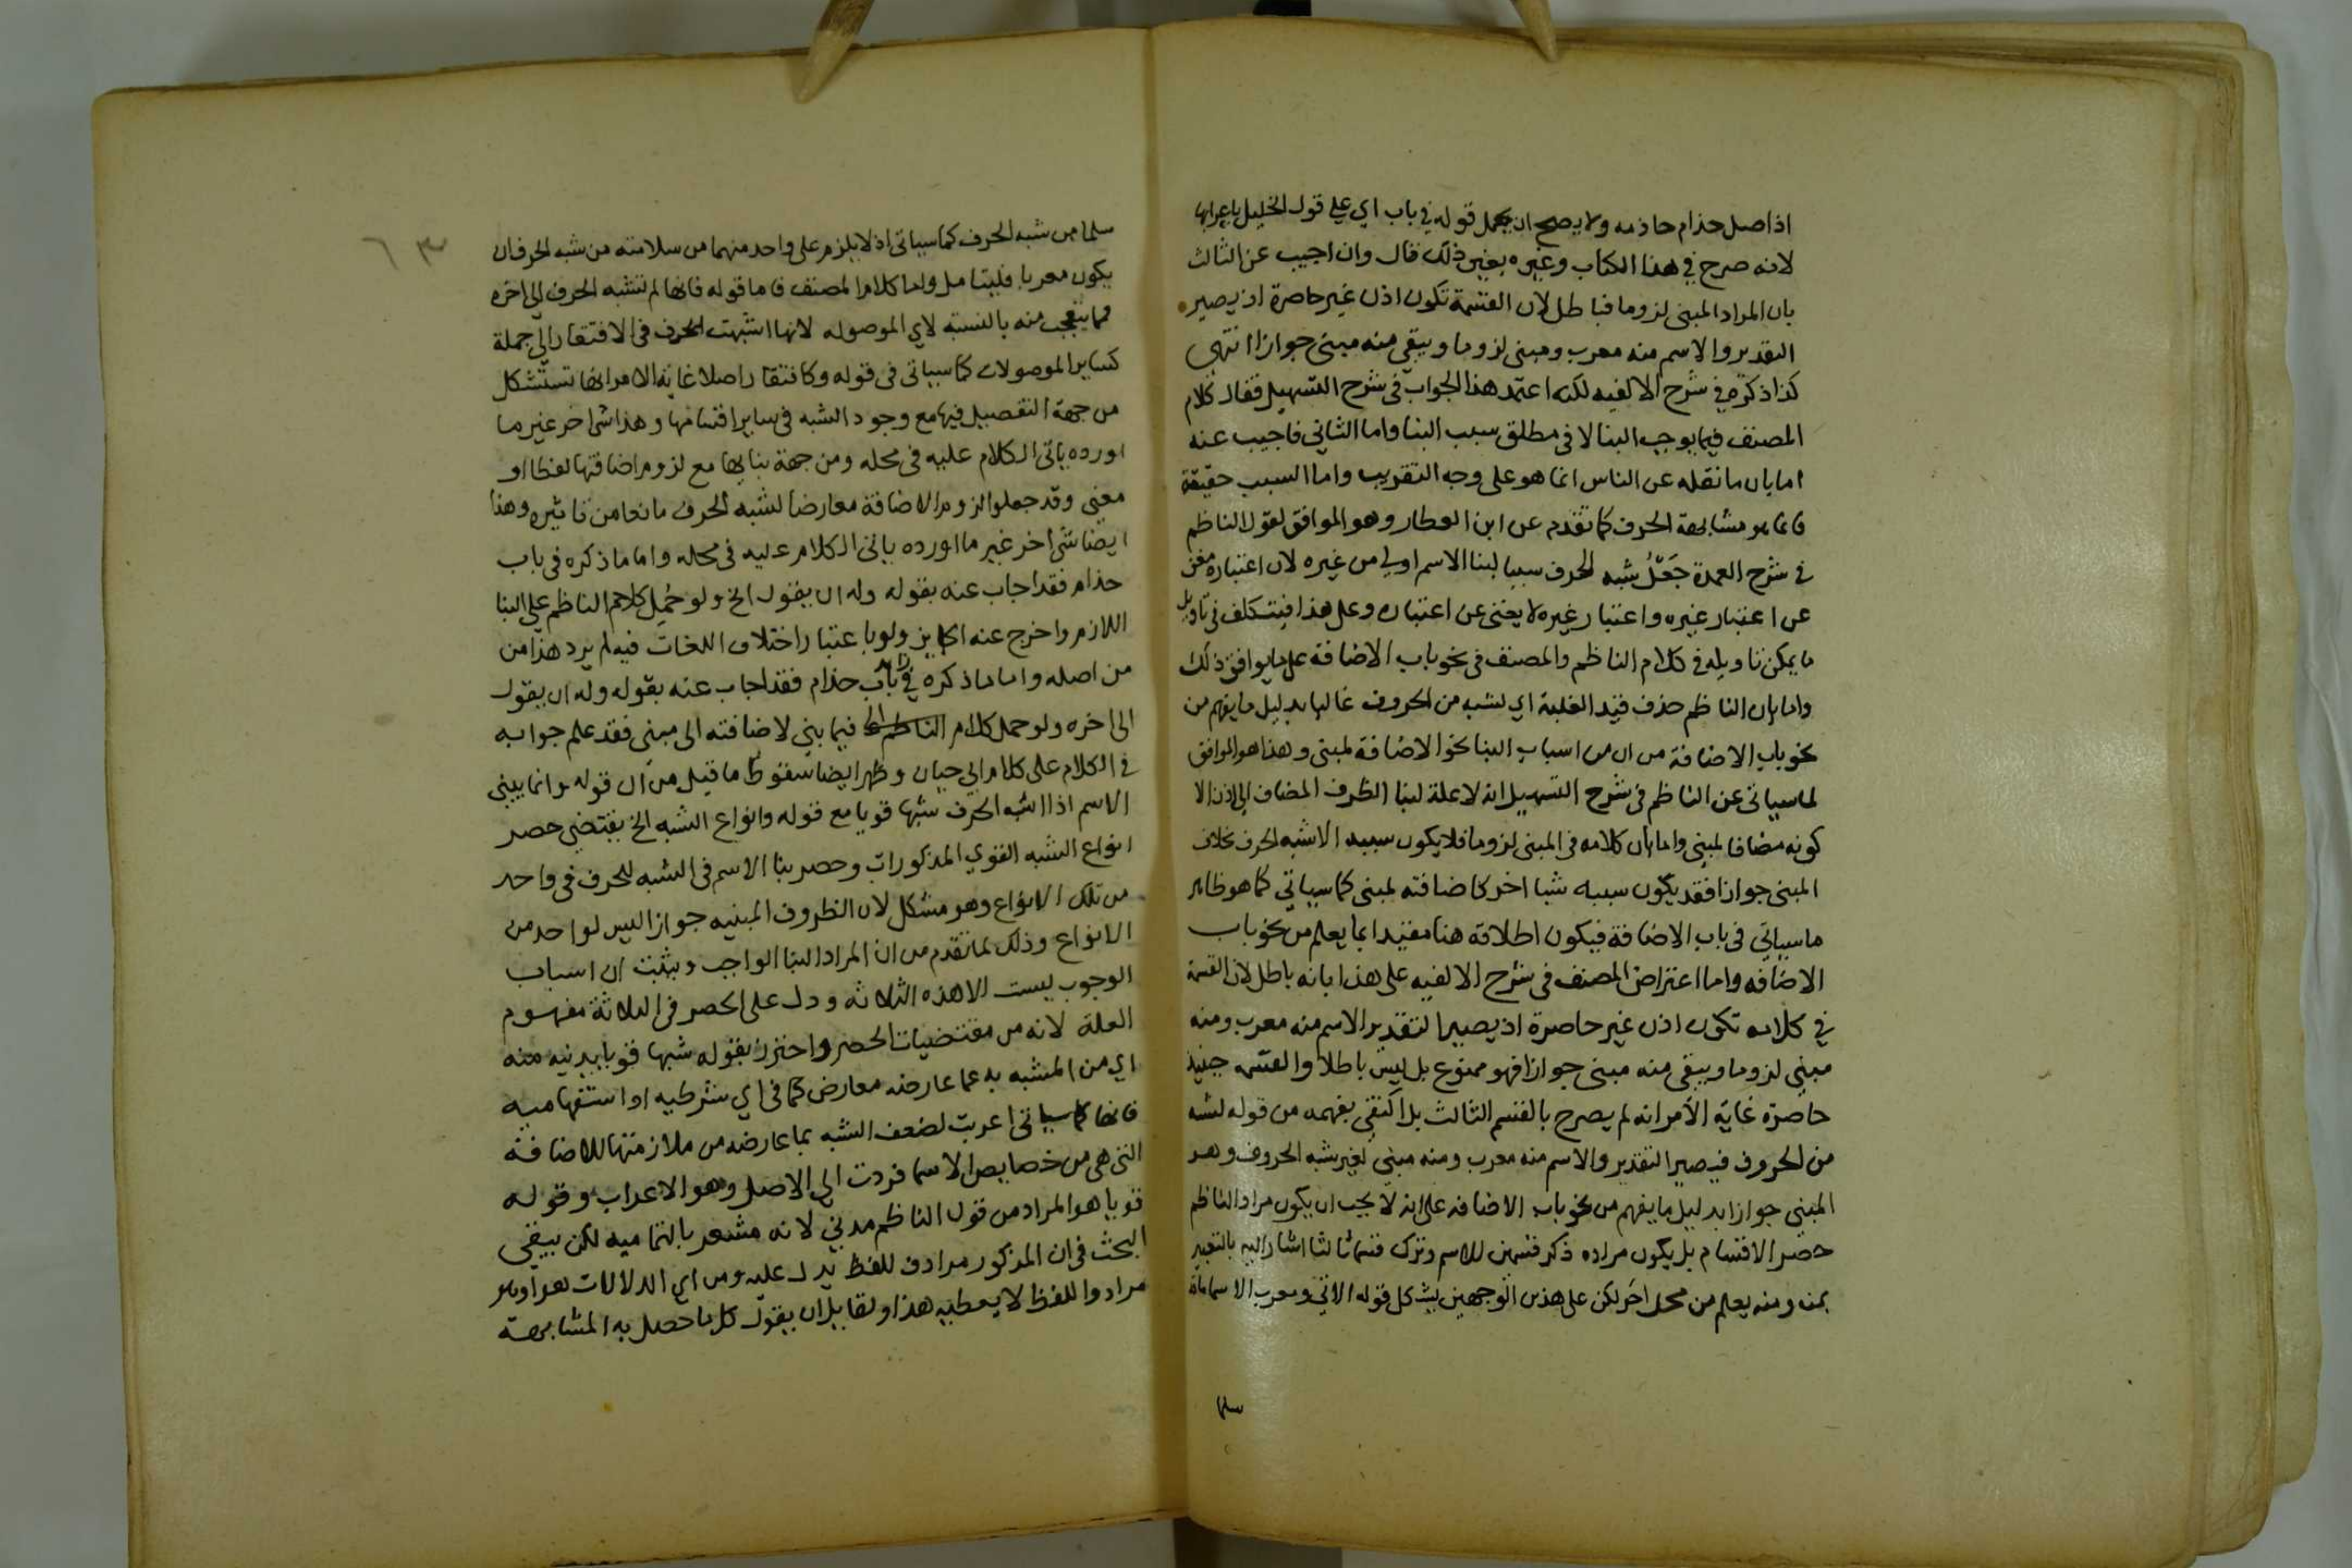 اذ اصل حذام حاذمه ولا يصح ان يحمل قوله في باب اي على قول الخليل باعرابها
لانه صرح في هذا الكتاب وغيره بغير ذلك قال وان اجيب عن الثالث
بان المراد المبنى لزوما فباطل لان القسمة تكون اذن غير حاصرة اذ يصير
التقدير والاسم منه معرب ومبنى لزوما ويبقى منه مبنى جوازا انتهى
كذا ذكره في شرح الالفيه لكنه اعتمد هذا الجواب في شرح التسهيل فقال كلام
المصنف فيما يوجب البنا لا في مطلق سبب البنا واما الثاني فاجيب عنه
اما بان ما نقله عن الناس انما هو على وجه التقريب واما السبب حقيقة
فانما هو مشابهة الحرف كما تقدم عن ابن العطار وهو الموافق لقول الناظم
في شرح العمدة جَعْلُ شبه الحرف سببا لبنا الاسم اولى من غيره لان اعتباره مغن
عن اعتبار غيره واعتبار غيره لا يغنى عن اعتباره وعلى هذا فيتكلف في تاويل
ما يمكن تاويله في كلام الناظم والمصنف في نحو باب الاضافة على ما يوافق ذلك
واما بان الناظم حذف قيد الغلبة اي لشبه من الحروف غالبا بدليل ما يفهم من
نحو باب الاضافة من ان من اسباب البنا نحو الاضافة لمبنى وهذا هو الموافق
لما سياتي عن الناظم في شرح التسهيل انه لا علة لبنا الظرف المضاف الى اذ الا
كونه مضافا لمبنى واما بان كلامه في المبنى لزوما فلا يكون سببه الا شبه الحرف بخلاف
المبنى جوازا فقد يكون سببه شيا اخر كاضافته لمبنى كما سياتي كما هو ظاهر
ما سياتي في باب الاضافة فيكون اطلاقه هنا مقيدا بما يعلم من نحو باب
الاضافه واما اعتراض المصنف في شرح الالفيه على هذا بانه باطل لان القسمة
في كلامه تكون اذن غير حاصرة اذ يصير التقدير الاسم منه معرب ومنه
مبنى لزوما ويبقى منه مبنى جوازا فهو ممنوع بل ليس باطلا والقسمه حينئذ
حاصرة غاية الامر انه لم يصرح بالقسم الثالث بل اكتفى بفهمه من قوله لشبه
من الحروف فيصير التقدير والاسم منه معرب ومنه مبنى لغير شبه الحروف وهو
المبنى جوازا بدليل ما يفهم من نحو باب الاضافه على انه لا يجب ان يكون مراد الناظم
حصر الاقسام بل يكون مراده ذكر قسمين للاسم وترك قسما ثالثا اشار اليه بالتعبير
بمنه ومنه يعلم من محل اخر لكن على هذين الوجهين يشكل قوله الاتي ومعرب الاسما ما قد
سلما
٦٣
سلما من شبه الحرف كما سياتي اذ لا يلزم على واحد منهما من سلامته من شبه الحرف ان
يكون معربا فليتامل واما كلام المصنف فاما قوله فانها لم تشبه الحرف الى اخره
فمما يتعجب منه بالنسبة لاي الموصوله لانها اشبهت الحرف في الافتقار الى جملة
كساير الموصولات كما سياتي في قوله وكافتقار اصلا غاية الامر انها تستشكل
من جهة التفصيل فيها مع وجود الشبه في ساير اقسامها وهذا شى اخر غير ما
اورده ياتي الكلام عليه في محله ومن جهة بنايها مع لزوم اضافتها لفظا او
معنى وقد جعلوا لزوم الاضافة معارضا لشبه الحرف مانعا من تاثيره وهذا
ايضا شى اخر غير ما اورده ياتي الكلام عليه في محله واما ما ذكره في باب
حذام فقد اجاب عنه بقوله وله ان يقول الخ ولو حُمِل كلام الناظم على البنا
اللازم واخرج عنه الجايز ولو باعتبار اختلاف اللغات فيه لم يرد هذا من
من اصله واما ما ذكره في باب حذام فقد اجاب عنه بقوله وله ان يقول
الى اخره ولو حمل كلام الناظم فيما بني لاضافته الى مبنى فقد علم جوابه
في الكلام على كلام ابي حيان وظهر ايضا سقوط ما قيل من ان قوله وانما يبنى
الاسم اذا اشبه الحرف شبها قويا مع قوله وانواع الشبه الخ يقتضي حصر
انواع الشبه القوي المذكورات وحصر بنا الاسم في الشبه للحرف في واحد
من تلك الانواع وهو مشكل لان الظروف المبنيه جوازا ليس لواحد من
الانواع وذلك لما تقدم من ان المراد البنا الواجب ويثبت ان اسباب
الوجوب ليست الا هذه الثلاثه ودل على الحصر في الثلاثة مفهوم
العلة لانه من مقتضيات الحصر واحترز بقوله شبها قويا يدنيه منه
اي من المشبه به عما عارضه معارض كما في اي شرطيه او استفهاميه
فانها كما سياتي اعربت لضعف الشبه بما عارضه من ملازمتها للاضافة
التى هى من خصايص الاسما فردت الى الاصل وهو الاعراب وقوله
قويا هو المراد من قول الناظم مدني لانه مشعر بالتماميه لكن يبقى
البحث في ان المذكور مرادف للفظ يدل عليه ومن اي الدلالات هو او هو
مراد واللفظ لا يعطيه هذا ولقايل ان يقول كل ما حصل به المشابهة